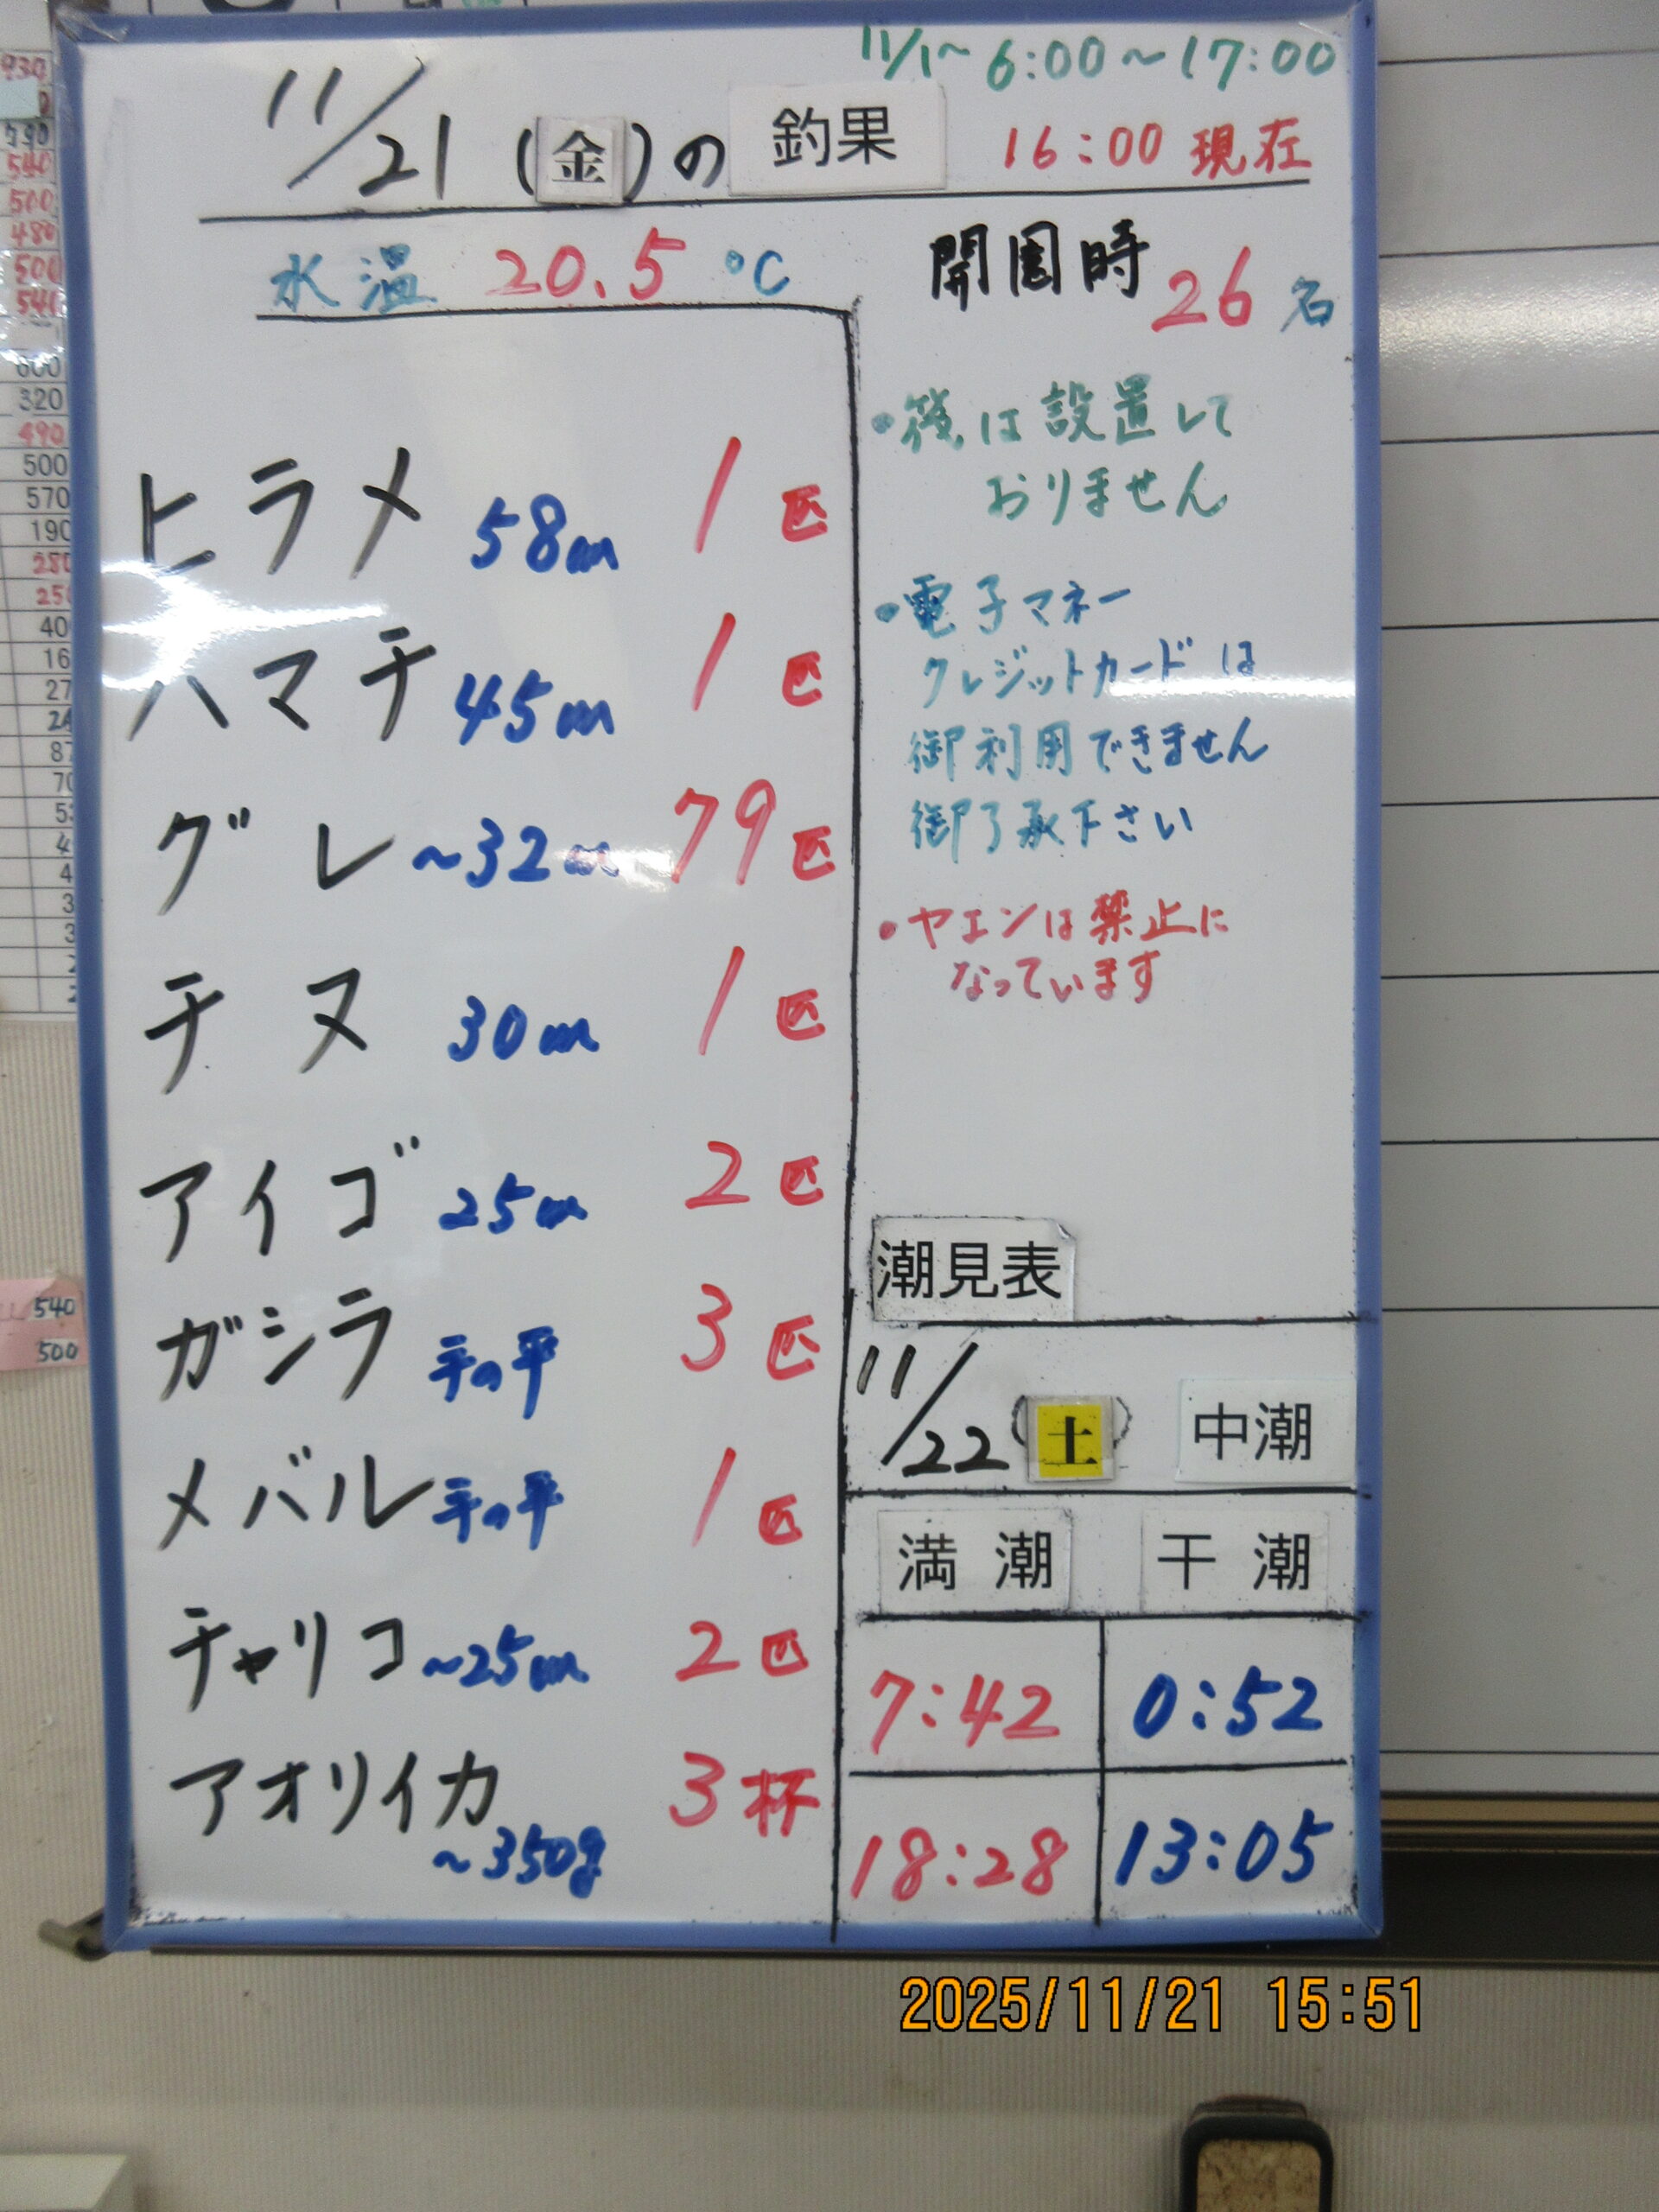 11/1～6:00～17:00
11/21(金)の 釣果 16:00 現在
水温 20.5 ℃
開園時 26名
ヒラメ 58cm 1匹
ハマチ 45cm 1匹
グレ ～32cm 79匹
チヌ 30cm 1匹
アイゴ 25cm 2匹
ガシラ 手の平 3匹
メバル 手の平 1匹
チャリコ ～25cm 2匹
アオリイカ 3杯
～350g
・筏は設置して
おりません
・電子マネー
クレジットカードは
御利用できません
御了承下さい
・ヤエンは禁止に
なっています
潮見表
11/22(土) 中潮
満潮 干潮
7:42 0:52
18:28 13:05
2025/11/21 15:51
540
500